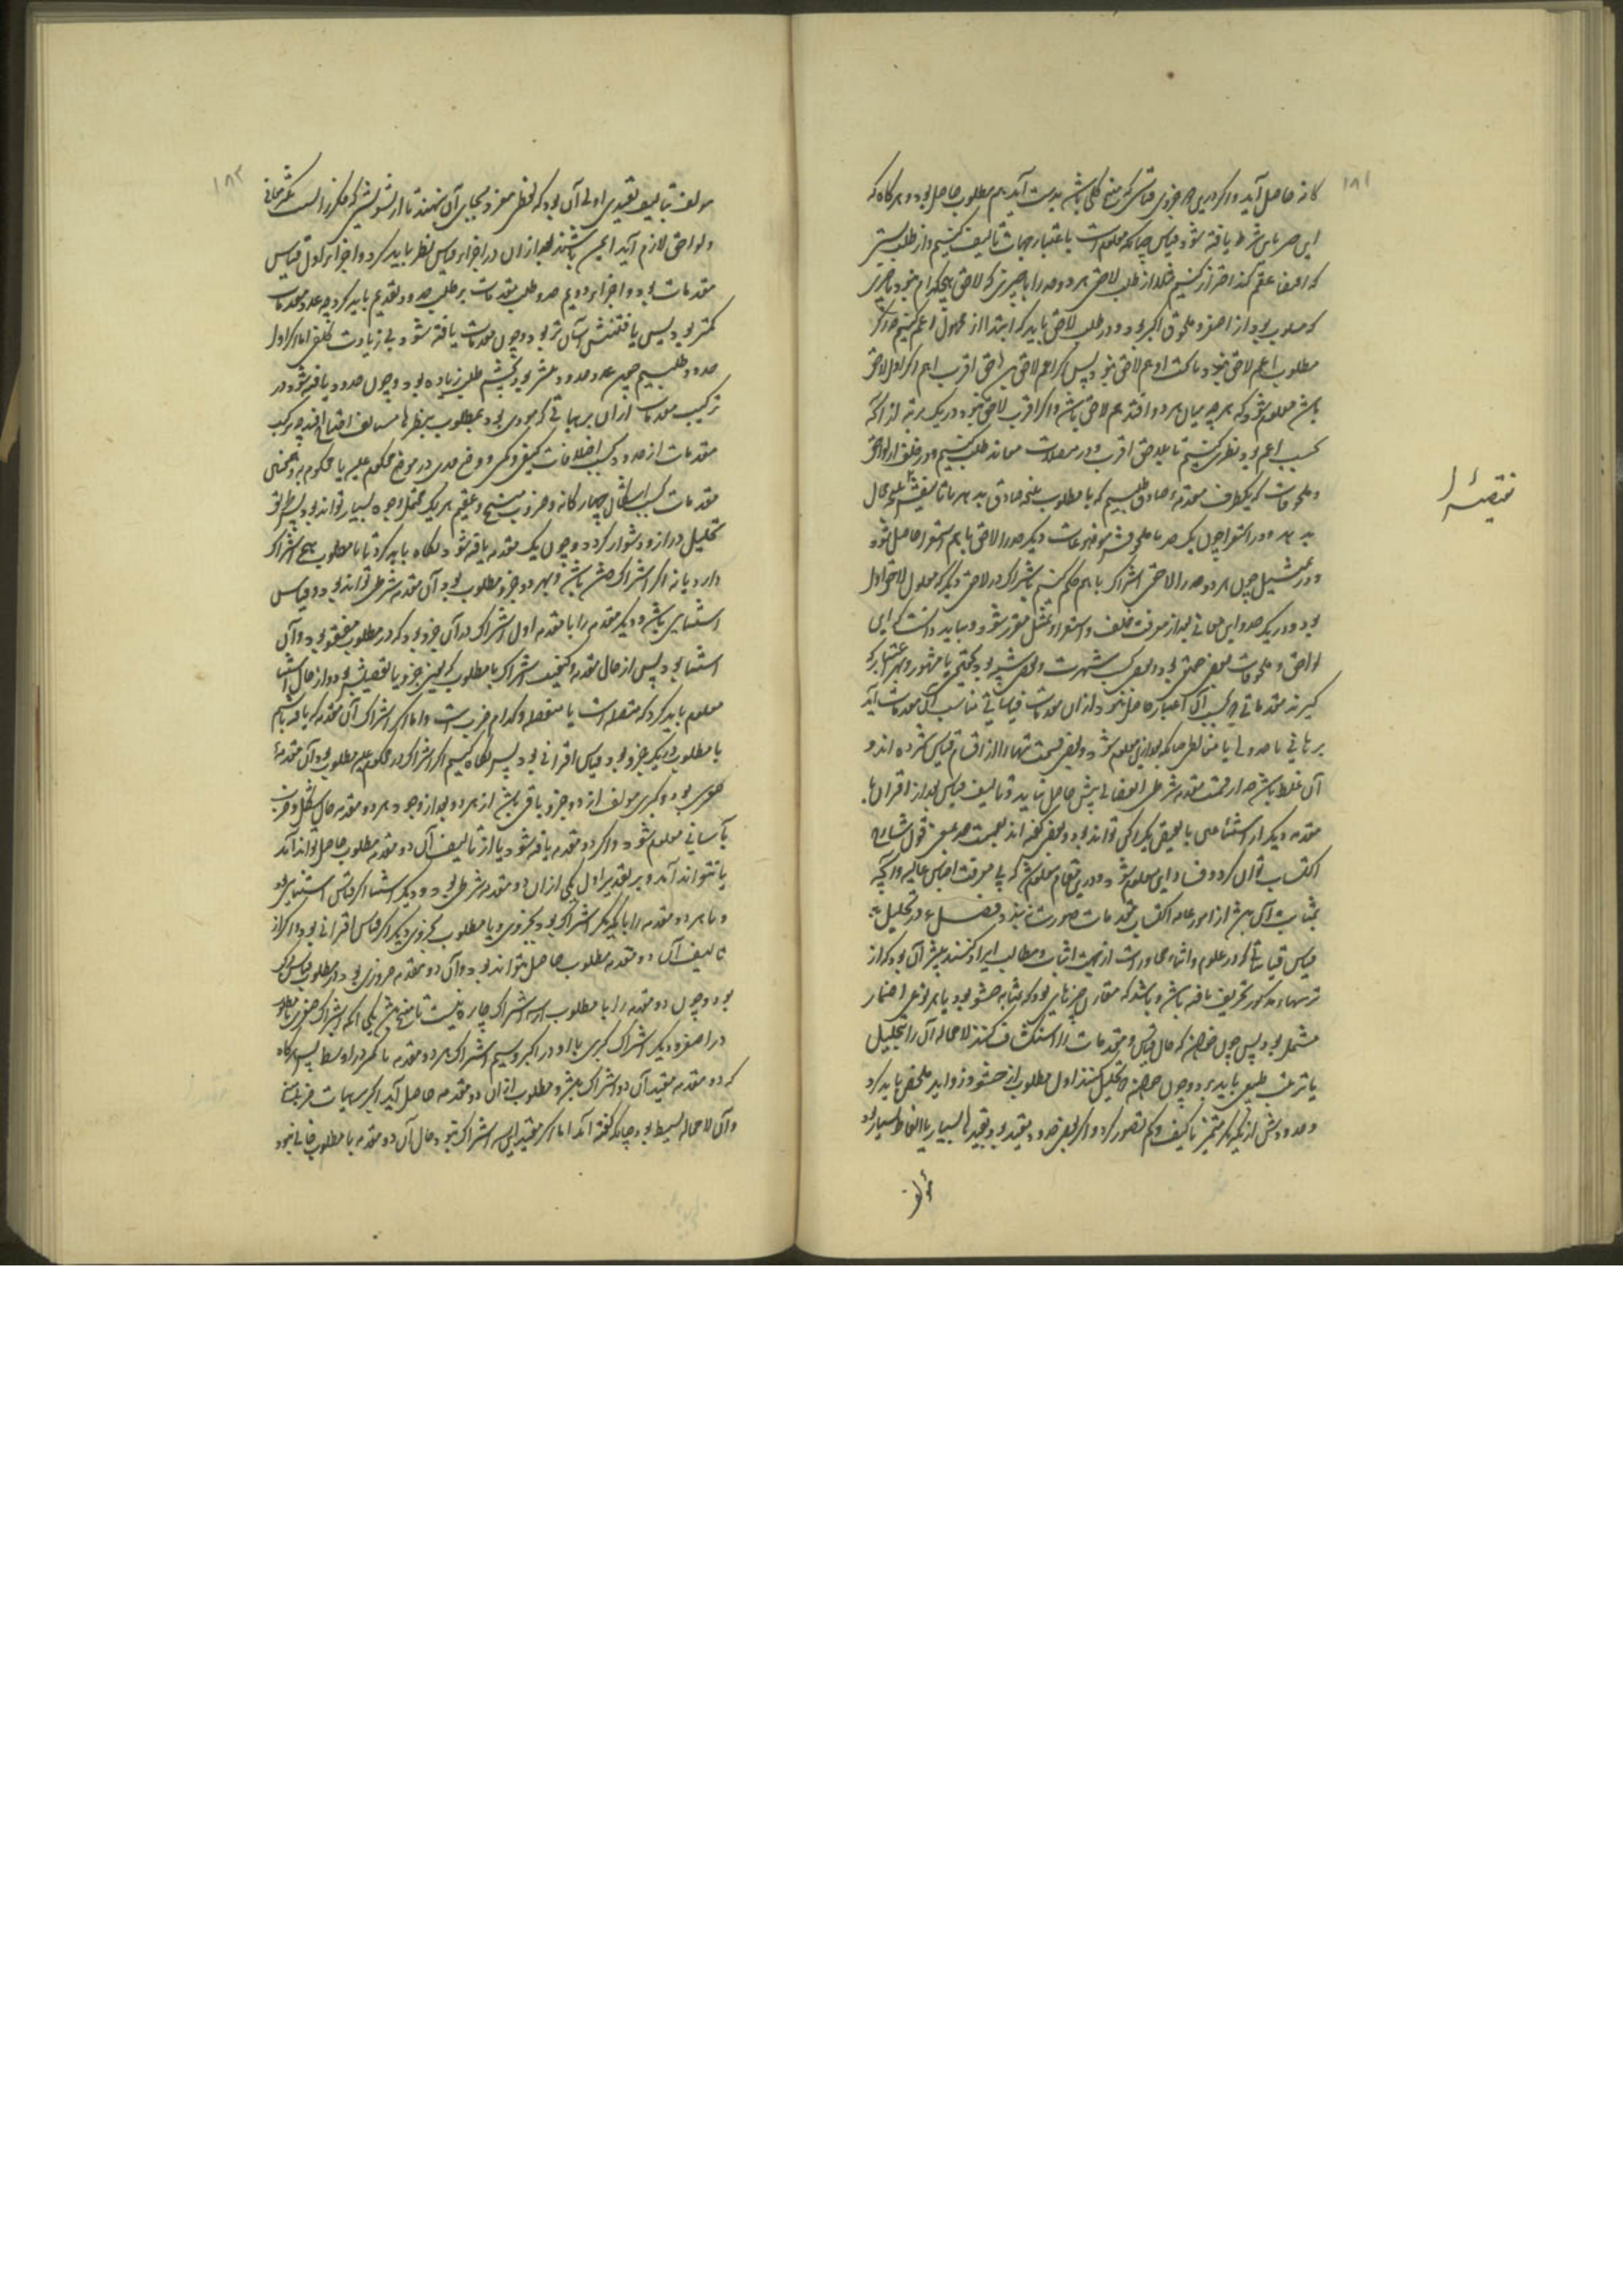 ۱۸۱
کانه حاصل آید و اگر درین هر جزوی قیاسی که منتج کلی باشد بدست آید هم مطلوب حاصل بود و هرگاه که
این هر باین شرط یافته شود قیاس چنانکه معلومست باعتبار جهات تالیف کنیم و از طلب
که اقتضا عقم کند احتراز کنیم مثلا از طلب لاحق هر دو حد را با چیزی که لاحق هیچکدام نبود یا چیزی
که مسلوب بود از اصغر و ملحوق اکبر بود و در طلب لاحق باید که ابتدا از محمول اعم کنیم چه اگر
مطلوب اعم لاحق نبود ما تحت او هم لاحق نبود پس اگر اعم لاحق لاحق اقرب اهم و اگر اول لاحق
باشد معلوم شود که هر چه میان هر دو افتد هم لاحق باشد و اگر اقرب لاحق نبود و در یک مرتبه از آنکه
بحسب اعم بود نظر کنیم تا بلاحق اقرب و در متصلات معاند طلب کنیم و در خلف از لواحق
و ملحوقات که یکطرف مقدمهٔ صادق طلبیم که با مطلوب نتیجه صادق بدهد یا با نقیضش نتیجه محال
بدهد و در استقرا چون یک حد با ملحوقش موضوعات دیگر حد را لاحق یابیم استقرا حاصل شود
و در تمثیل چون هر دو حد را لاحق اشتراک یابیم حکم کنیم باشتراک در لاحق دیگر که معلول لاحق اول
بود و در یک حد و این معانی بعد از معرفت خلف و استقرا و تمثیل مقرر شود و بباید دانست که این
لواحق و ملحوقات بعضی حقیقی بود و بعضی بحسب شهرت و بعضی شبیه بود بحقیقی یا مشهور و بهر اعتبار که
گیرند مقدماتی که بحسب آن اعتبار حاصل شود و از آن مقدمات قیاساتی مناسب آن مقدمات آید
برهانی یا جدلی یا مغالطی چنانکه بعد ازین معلوم شود و بعضی قسمت تنها را از اقسام قیاس شمرده اند و
آن غلط باشد چه از قسمت مقدمه شرطی انفصالی بیش حاصل نیاید و تالیف قیاس بعد از اقتران با
مقدمه دیگر از استثنا عین یا نقیض یکی تواند بود و بعضی گفته اند بقسمت قول شارح
اکتساب توان کرد و فساد این معلوم شود و درین مقام معلوم شد که بی معرفت اجناس عالیه و آنچه
بمثابت آن باشد از امور عامه اکتساب مقدمات صورت نبندد فصل ۴ در تحلیل
قیاس قیاساتی که در علوم و اثناء محاورات از جهت اثبات مطالب ایراد کنند بیشتر آن بود که از
ترتیبهاء مذکور تحریف یافته باشد و باشد که مقارن چیزهایی بود که بمثابه حشو بود یا بر نوعی اضمار
مشتمل بود پس چون خواهند که حال قیاس و مقدمات را استکشاف کنند لا محاله آن را بتحلیل
با ترتیب طبیعی باید برد و چون خواهند که تحلیل کنند اول مطلوب را از حشو و زواید ملخص باید کرد
و حدودش از یکدیگر متمیز با کیف و کم تصور کرد و اگر بعضی حدود مقید بود بقیدهای بسیار یا الفاظ بسیار بود
مؤلف
نقیضهٔ را
۱۸۲
مولف بتالیف تقییدی اولی آن بود که لفظی مفرد بجای آن بنهند تا از تشویشی که فکر را بسبب تکثر معانی
و لواحق لازم آید ایمن باشند بعد از آن در اجزاء قیاس نظر باید کرد و اجزاء اول قیاس
مقدمات بود و اجزاء دویم حدود و طلب مقدمات بر طلب حدود تقدیم باید کرد چه عدد مقدمات
کمتر بود پس یافتنش آسان تر بود و چون مقدمات یافته شود بی زیادت کلفتی اما اگر اول
حدود طلبیم چون عدد حدود بیشتر بود تجشم طلب زیاده بود و چون حدود یافته شود در
ترکیب مقدمات از آن بر هیاتی که مودی بود بمطلوب بنظرها مستانف احتیاج افتد چه ترکیب
مقدمات از حدود بحسب اختلافات کیفی و کمی و وضع حدی در موضع محکوم علیه یا محکوم به و همچنین
مقدمات بحسب اشکال چهارگانه و ضروب منتج و عقیم هر یک محتمل وجوه بسیار تواند بود پس طریق
تحلیل دراز و دشوار گردد و چون یک مقدمه یافته شود نگاه باید کرد تا با مطلوب هیچ اشتراک
دارد یا نه اگر اشتراکش باشد و بهر دو جزو مطلوب بود آن مقدمه شرطی تواند بود و قیاس
استثنایی باشد و دیگر مقدمه را با مقدمه اول اشتراک در آن جزو بود که در مطلوب مفقود بود و آن
استثنا بود پس از حال مقدمه و کیفیت اشتراک با مطلوب که بعین جزو یا نقیضش بود و از حال استثنا
معلوم باید کرد که متصله است یا منفصله و کدام ضربست و اما اگر اشتراک آن مقدمه که یافته باشیم
با مطلوب در یک جزو بود قیاس اقترانی بود پس نگاه کنیم اگر اشتراک در محکوم علیه مطلوب بود آن مقدمهٔ
صغری بود و کبری مولف از دو جزو باقی باشد از هر دو بعد از وجود هر دو مقدمه حال شکل و ضرب
بآسانی معلوم شود و اگر دو مقدمه یافته شود یا از تالیف آن دو مقدمه مطلوب حاصل تواند آمد
یا نتواند آمد و بر تقدیر اول یکی از آن دو مقدمه شرطی بود و دیگر استثنا اگر قیاس استثنایی بود
و یا هر دو مقدمه را با یکدیگر اشتراک بود بجزوی و با مطلوب بجزوی دیگر اگر قیاس اقترانی بود و اگر از
تالیف آن دو مقدمه مطلوب حاصل نتواند بود و آن دو مقدمه ضروری بود در مطلوب قیاس مرکب
بود و چون دو مقدمه را با مطلوب سه اشتراک چاره نیست تا منتج باشد یکی آنکه اشتراک صغری با مطلوب
در اصغر و دیگر اشتراک کبری با او در اکبر و سیم اشتراک هر دو مقدمه با یکدیگر در اوسط پس هرگاه
که دو مقدمه مفید آن دو اشتراک باشد و مطلوب از آن دو مقدمه حاصل آید اگر بهیات ضربی باشد
و آن لا محاله بسیط بود چنانکه گفته آمد اما اگر مفید این سه اشتراک نبود حال آن دو مقدمه با مطلوب خالی نبود